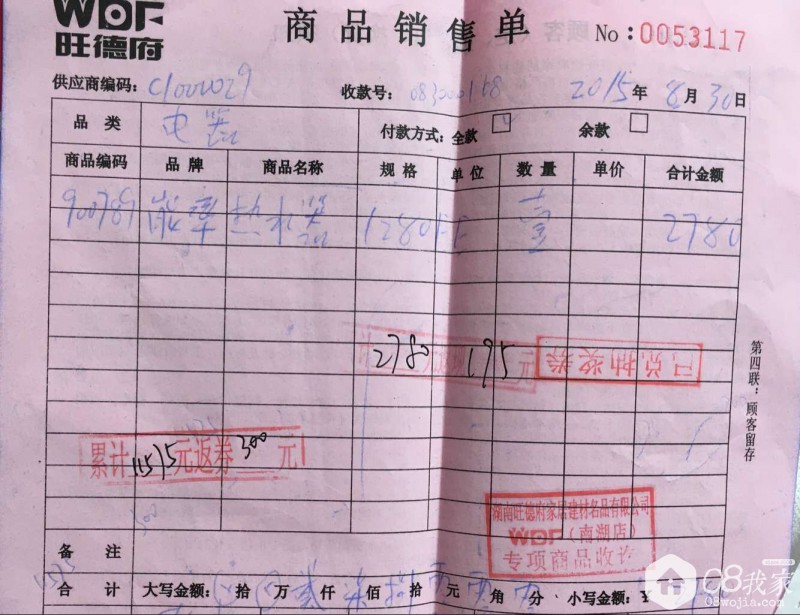 WDF
旺德府
商品销售单 No:0053117
供应商编码: C1000029 收款号: 083000168 2015年8月30日
品类 电器 付款方式: 全款 余款
商品编码 品牌 商品名称 规格 单位 数量 单价 合计金额
900789 能率 热水器 1280FE 壹 2780
2780 195 元
已兑抽奖券
累计11575元返券300元
第四联:顾客留存
湖南旺德府家居建材名品有限公司
WDF(南湖店)
专项商品收讫
备注
合计 大写金额: 拾 万 仟 柒 佰 捌 拾 元 零 角 零 分 小写金额: ¥
08我家
08wojia.com